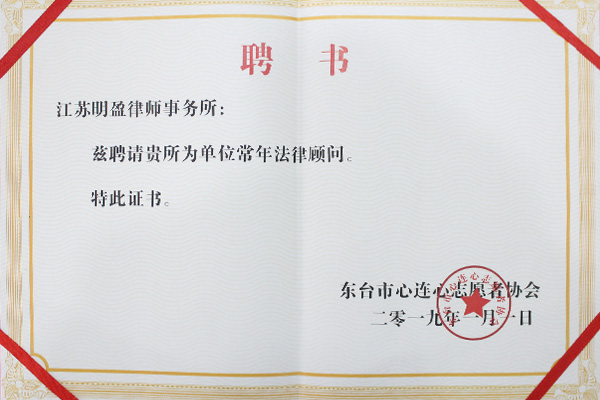 聘书
江苏明盈律师事务所：
兹聘请贵所为单位常年法律顾问。
特此证书。
东台市心连心志愿者协会
二零一九年一月一日
东台市心连心志愿者协会